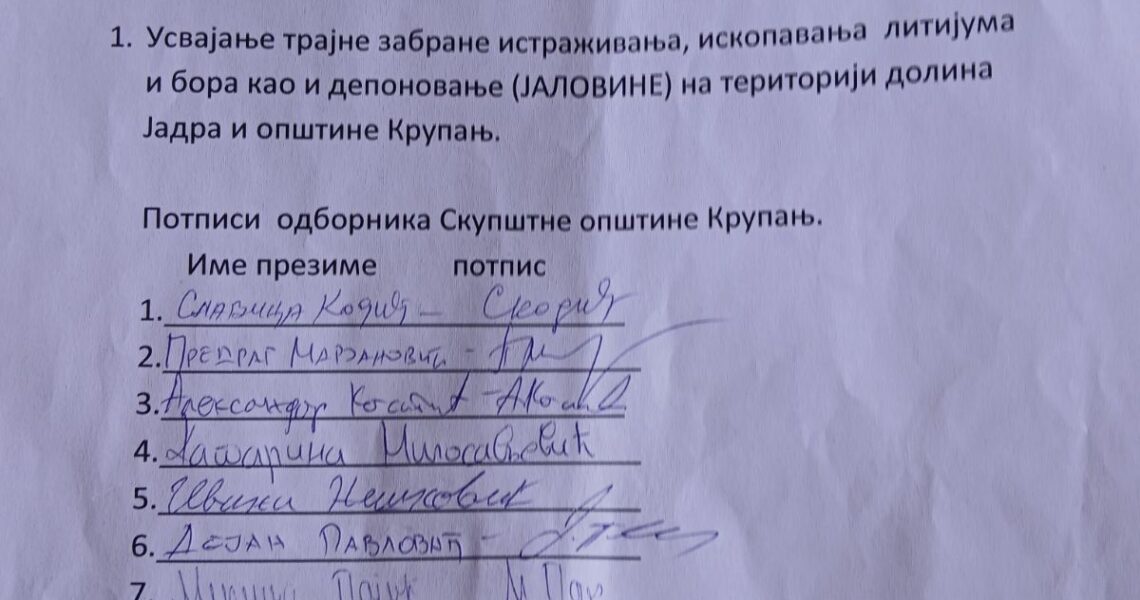 1. Усвајање трајне забране истраживања, ископавања литијума
и бора као и депоновање (ЈАЛОВИНЕ) на територији долина
Јадра и општине Крупањ.
Потписи одборника Скупштне општине Крупањ.
Име презиме потпис
1. Славица Кодић –
2. Предраг Марјановић -
3. Александар Костић -
4. Катарина Милосављевић
5.
6. Дејан Павловић -
7.